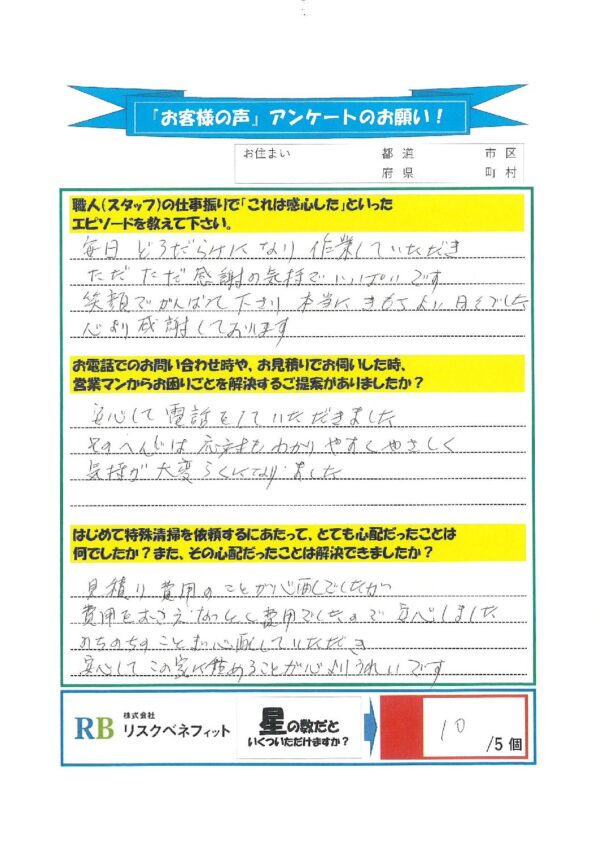 『お客様の声』アンケートのお願い！
お住まい 都道 市区
府県 町村
職人(スタッフ)の仕事振りで「これは感心した」といった
エピソードを教えて下さい。
毎日 どろだらけになり 作業していただき
ただただ感謝の気持でいっぱいです
笑顔でがんばって下さり 本当に きもちよい日々でした
心より感謝しております
お電話でのお問い合わせ時や、お見積りでお伺いした時、
営業マンからお困りごとを解決するご提案がありましたか？
安心して電話をしていただきました
そのへんじは 応対も わかりやすくやさしく
気持が大変らくになりました
はじめて特殊清掃を依頼するにあたって、とても心配だったことは
何でしたか？また、その心配だったことは解決できましたか？
見積り費用のことが心配でしたが
費用をおさえ なっとく費用でしたので 安心しました
のちのちのことまで心配していただき
安心してこの家に住めることが心よりうれしいです
RB 株式会社
リスクベネフィット
星の数だと
いくついただけますか？
10 /5個